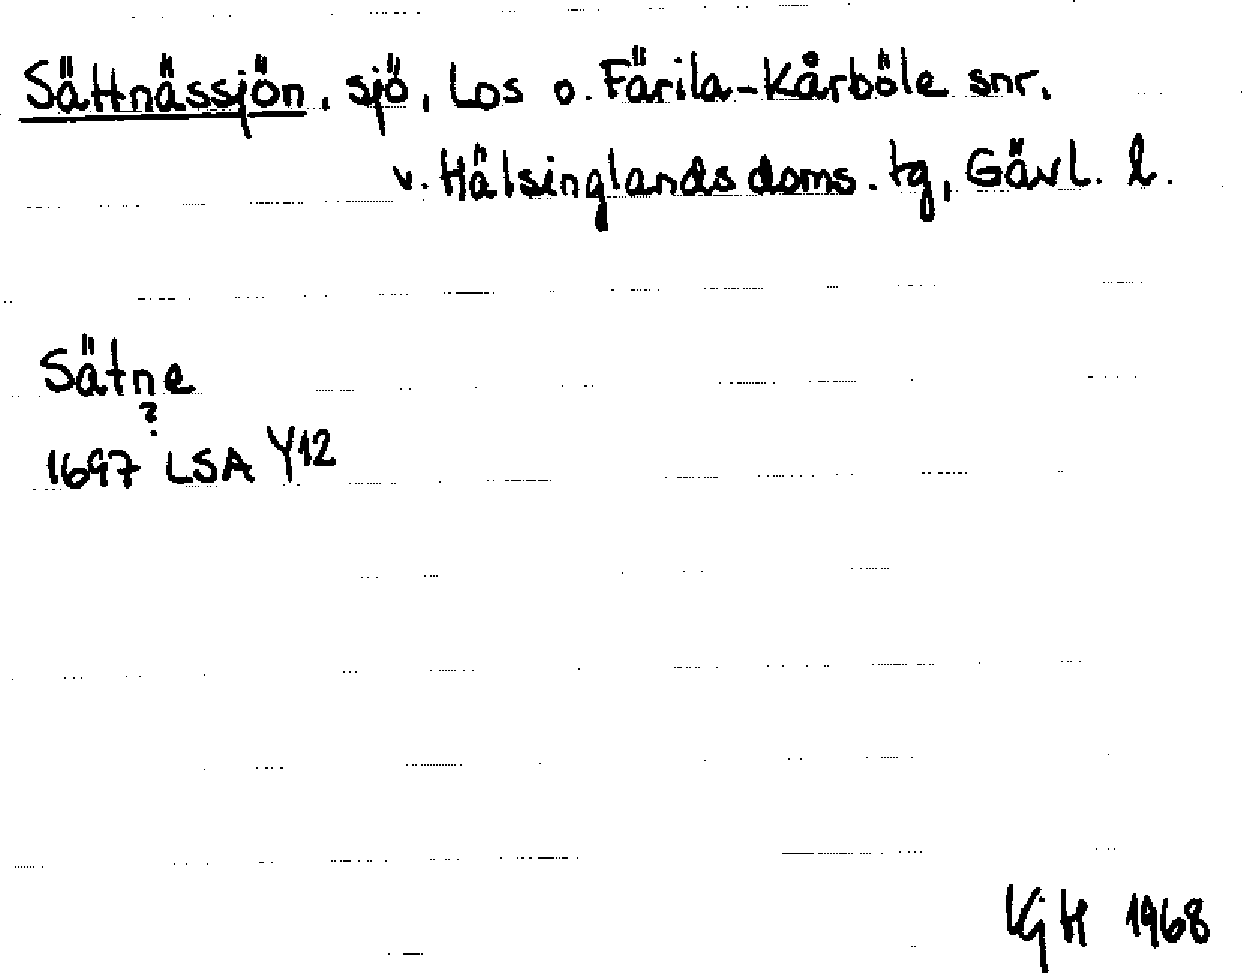 Sättnässjön, sjö, Los o. Färila-Kårböle snr.
v. Hälsinglands doms. tg, Gävl. l.
Sätne
?
1697 LSA Y12
KGH 1968